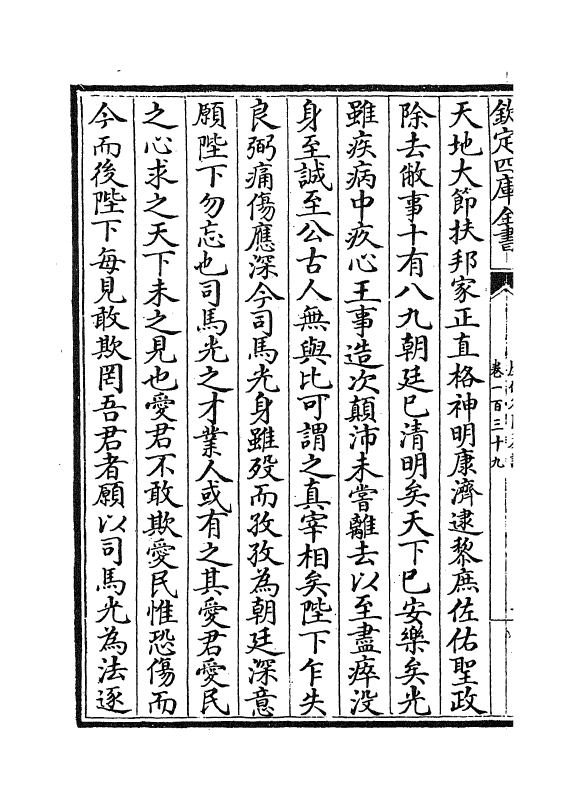 欽定四庫全書
卷一百三十九
天地大節扶邦家正直格神明康濟逮黎庶佐佑聖政
除去敝事十有八九朝廷已清明矣天下已安樂矣光
雖疾病中疚心王事造次顛沛未嘗離去以至盡瘁沒
身至誠至公古人無與比可謂之真宰相矣陛下乍失
良弼痛傷應深今司馬光身雖歿而孜孜為朝廷深意
願陛下勿忘也司馬光之才業人或有之其愛君愛民
之心求之天下未之見也愛君不敢欺愛民惟恐傷而
今而後陛下每見敢欺罔吾君者願以司馬光為法逐